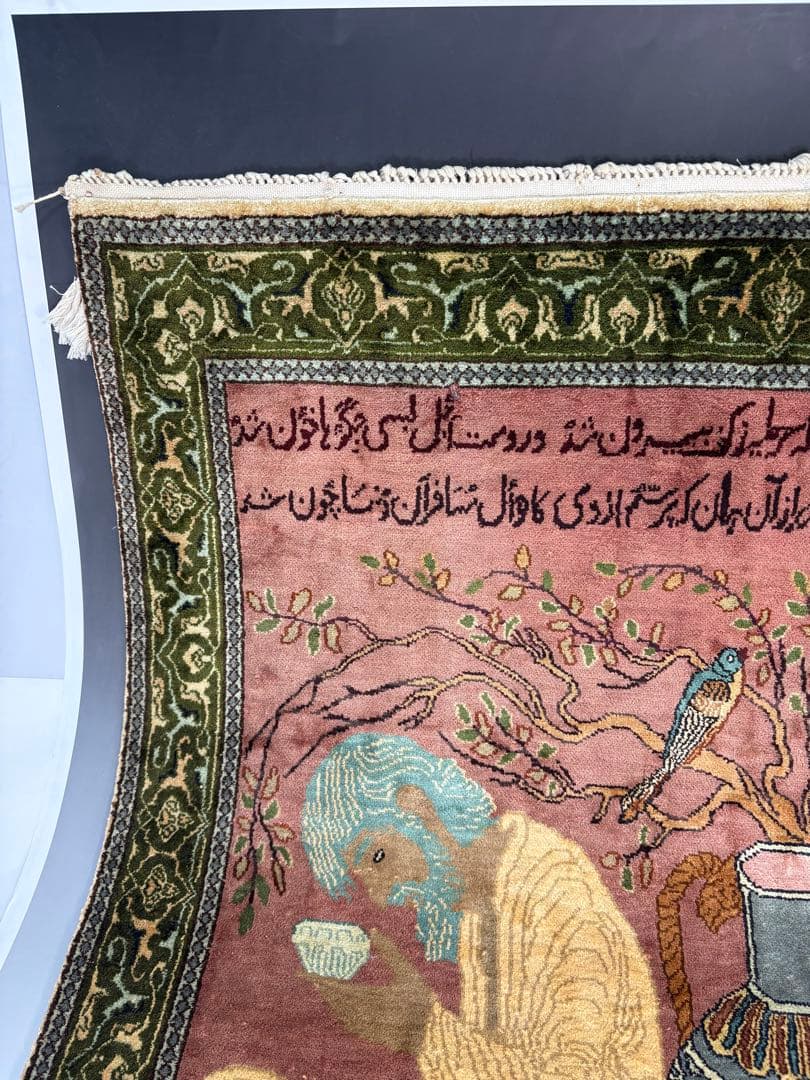 زکف بیرون شد و زدست اجل بسی جگرها خون شد
از آن جهان که پرسم ازوی کاوال مسافران دنیا چون شد